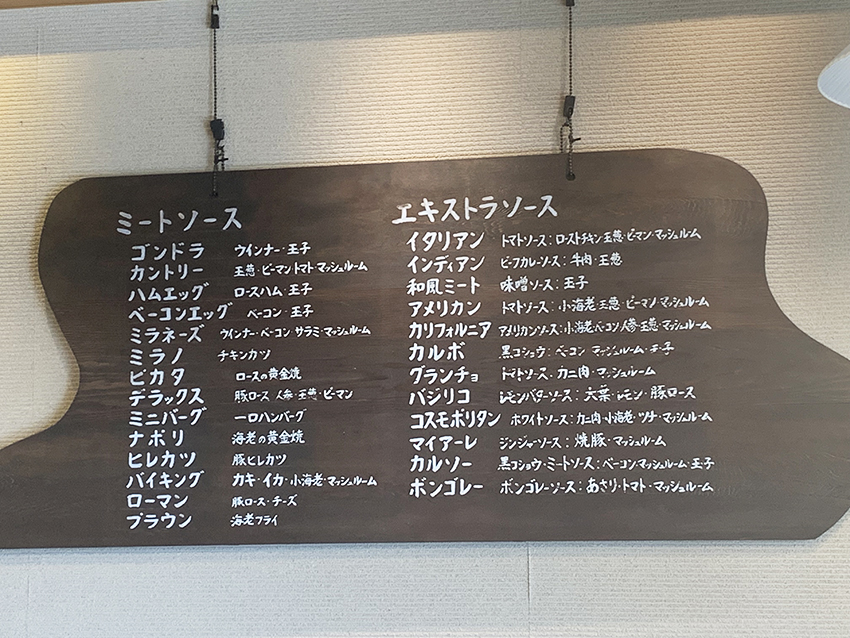 ミートソース
ゴンドラ ウインナー・王子
カントリー 玉葱・ピーマン トマト・マッシュルーム
ハムエッグ ロースハム・王子
ベーコンエッグ ベーコン・王子
ミラネーズ ウィンナー・ベーコン・サラミ・マッシュルーム
ミラノ チキンカツ
ピカタ ロースの黄金焼
デラックス 豚ロース 人参・玉葱・ピーマン
ミニバーグ 一口ハンバーグ
ナポリ 海老の黄金焼
ヒレカツ 豚ヒレカツ
バイキング カキ・イカ・小海老・マッシュルーム
ローマン 豚ロース・チーズ
ブラウン 海老フライ
エキストラソース
イタリアン トマトソース:ローストチキン 玉葱・ピーマン・マッシュルーム
インディアン ビーフカレーソース:牛肉・玉葱
和風ミート 味噌ソース:玉子
アメリカン トマトソース:小海老 玉葱・ピーマン・マッシュルーム
カリフォルニア アメリカンソース:小海老 ベーコン 人参・玉葱・マッシュルーム
カルボ 黒コショウ・ベーコン マッシュルーム・王子
グランチョ トマトソース・カニ肉・マッシュルーム
バジリコ レモンバターソース:六葉・レモン・豚ロース
コスモポリタン ホワイトソース:カニ肉・小海老・ツナ・マッシュルーム
マイアーレ ジンジャーソース:焼豚・マッシュルーム
カルソー 黒コショウ・ミートソース:ベーコン・マッシュルーム・玉子
ボンゴレー ボンゴレーソース:あさり・トマト・マッシュルーム